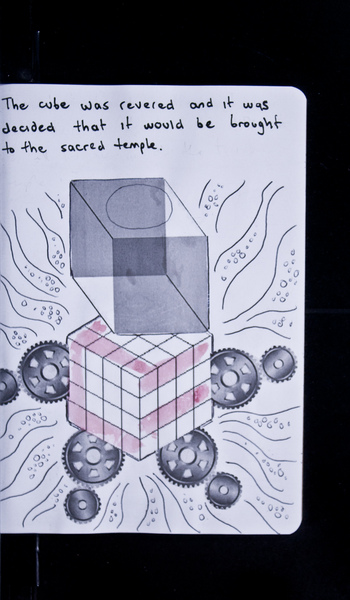 The cube was revered and it was
decided that it would be brought
to the sacred temple.